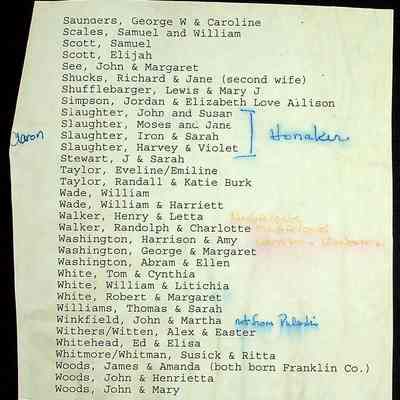 Saunders, George W & Caroline
Scales, Samuel and William
Scott, Samuel
Scott, Elijah
See, John & Margaret
Shucks, Richard & Jane (second wife)
Shufflebarger, Lewis & Mary J
Simpson, Jordan & Elizabeth Love Allison
Slaughter, John and Susan
Slaughter, Moses and Jane
Aaron Slaughter, Iron & Sarah Honaker
Slaughter, Harvey & Violet
Stewart, J & Sarah
Taylor, Eveline/Emiline
Taylor, Randall & Katie Burk
Wade, William
Wade, William & Harriett
Walker, Henry & Letta
Walker, Randolph & Charlotte
Washington, Harrison & Amy
Washington, George & Margaret
Washington, Abram & Ellen
White, Tom & Cynthia
White, William & Litichia
White, Robert & Margaret
Williams, Thomas & Sarah
Winkfield, John & Martha not from Pulaski
Withers/Witten, Alex & Easter
Whitehead, Ed & Elisa
Whitmore/Whitman, Susick & Ritta
Woods, James & Amanda (both born Franklin Co.)
Woods, John & Henrietta
Woods, John & Mary